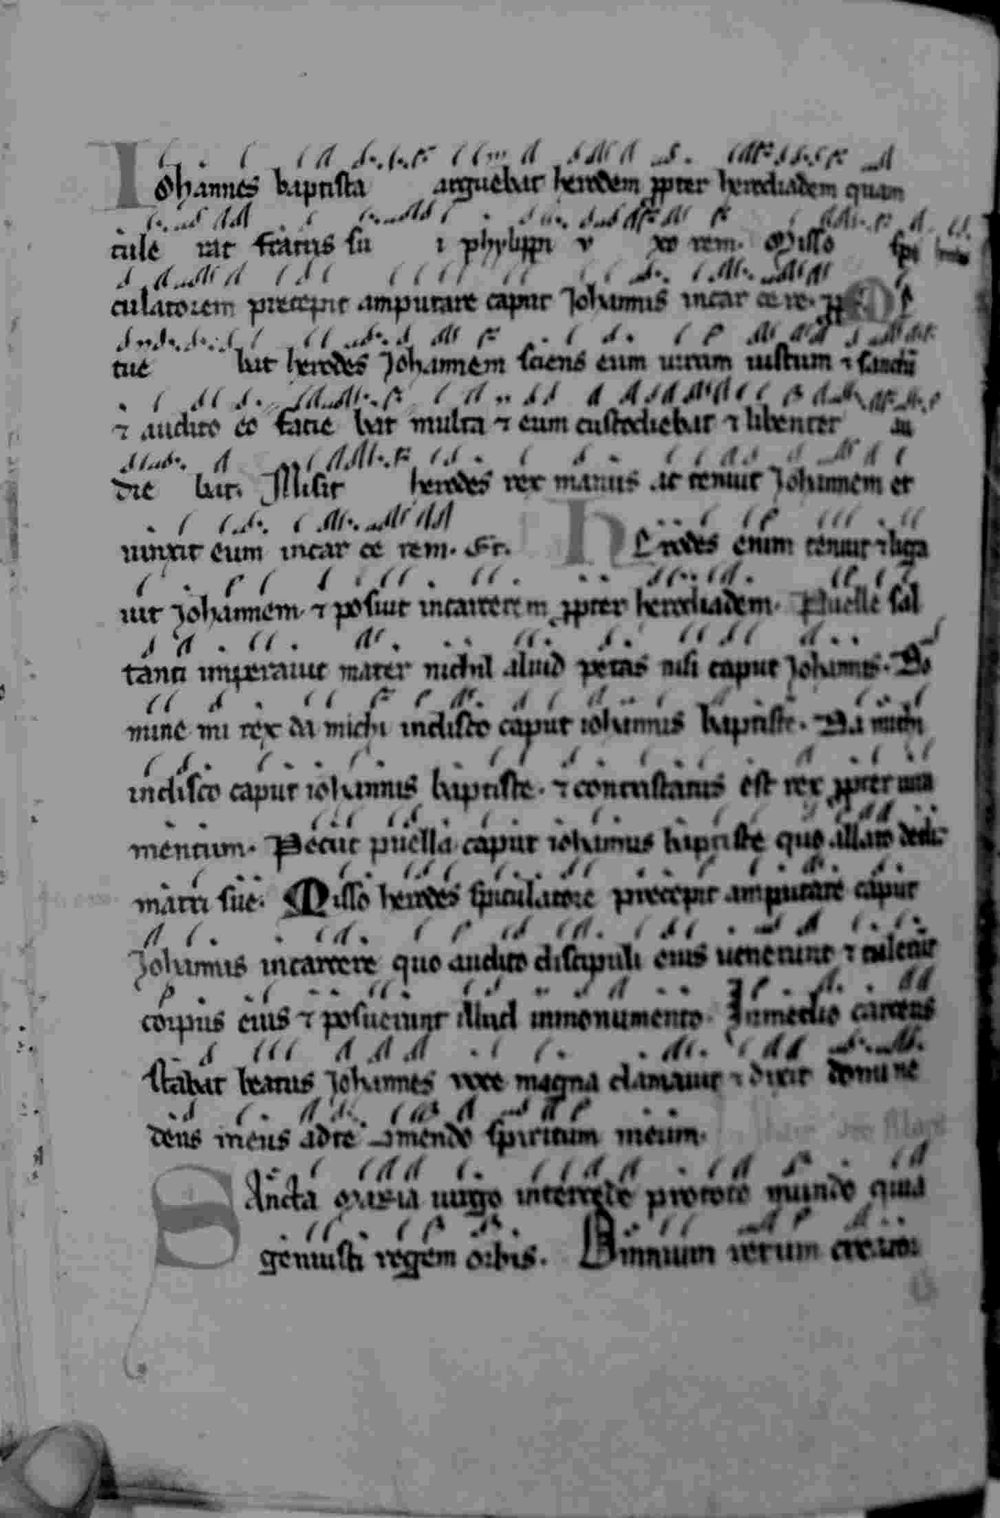 Iohannes baptista arguebat herodem ꝓpter herodiadem quam
tule rat fratris su i phylippi v xo rem. Misso spi
culatorem precepit amputare caput Johannis incar ce re.
tue bat herodes Johannem sciens eum uirum iustum ⁊ sanctū
⁊ audito eo facie bat multa ⁊ eum custodiebat ⁊ libenter au
die bat. Misit herodes rex manus ac tenuit Johannem et
uinxit eum incar ce rem. Herodes enim tenuit ⁊ liga
uit Johannem. ⁊ posuit incarcerem ꝓpter herodiadem. Puelle sal
tanti imperauit mater nichil aliud petas nisi caput Johannis. Do
mine mi rex da michi indisco caput iohannis baptiste. Da michi
indisco caput iohannis baptiste. ⁊ contristatus est rex ꝓpter iura
mentum. Petiit puella caput iohannis baptiste quo allato dedit
matri sue. Misso herodes spiculatore precepit amputare caput
Johannis incarcere quo audito discipuli eius uenerunt ⁊ tulerūt
corpus eius ⁊ posuerunt illud inmonumento. Inmedio carceris
stabat beatus Johannes uoce magna clamauit ⁊ dixit domine
deus meus adte commendo spiritum meum.
Sancta maria uirgo intercede prototo mundo quia
genuisti regem orbis. Omnium rerum creator